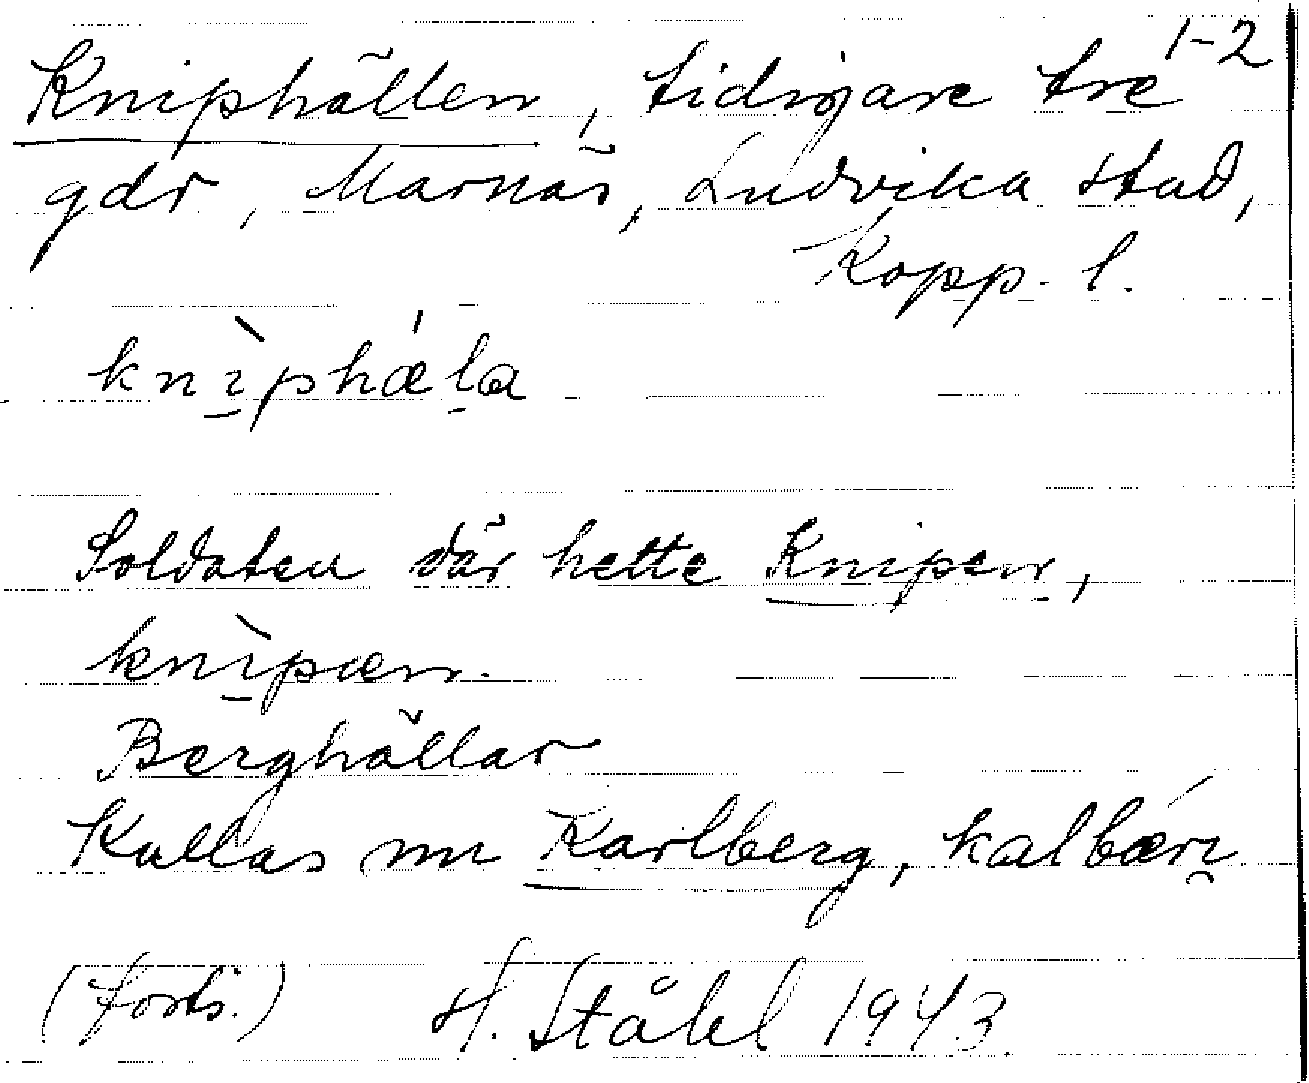 1-2
Kniphällen, tidigare tre
gdr, Marnäs, Ludvika stad,
Kopp. l.
knìphǽla
Soldaten där hette Knipen,
knìpæn.
Berghällar
Kallas nu Karlberg, kalbǽrɩ
(forts.) H. Ståhl 1943